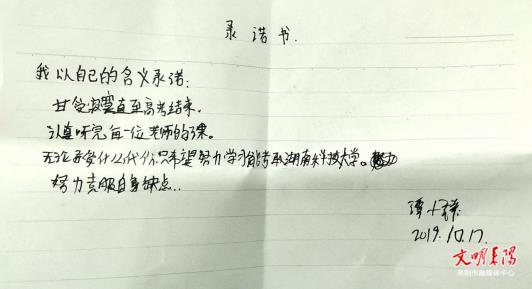 承诺书.
我以自己的名义承诺:
甘受寂寞直至高考结束.
认真听完每一位老师的课.
无论承受什么代价只希望努力学习能考取湖南科技大学。
努力克服自身缺点..
谭小
2019.10.17
文明耒阳
耒阳市融媒体中心